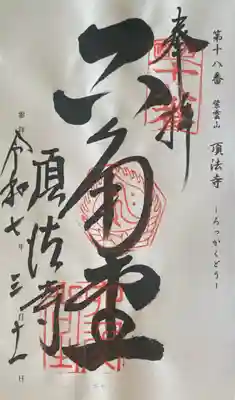 第十八番 紫雲山 頂法寺
－ろっかくどう－
奉拝
六角堂
頂法寺
令和七年三月十一日